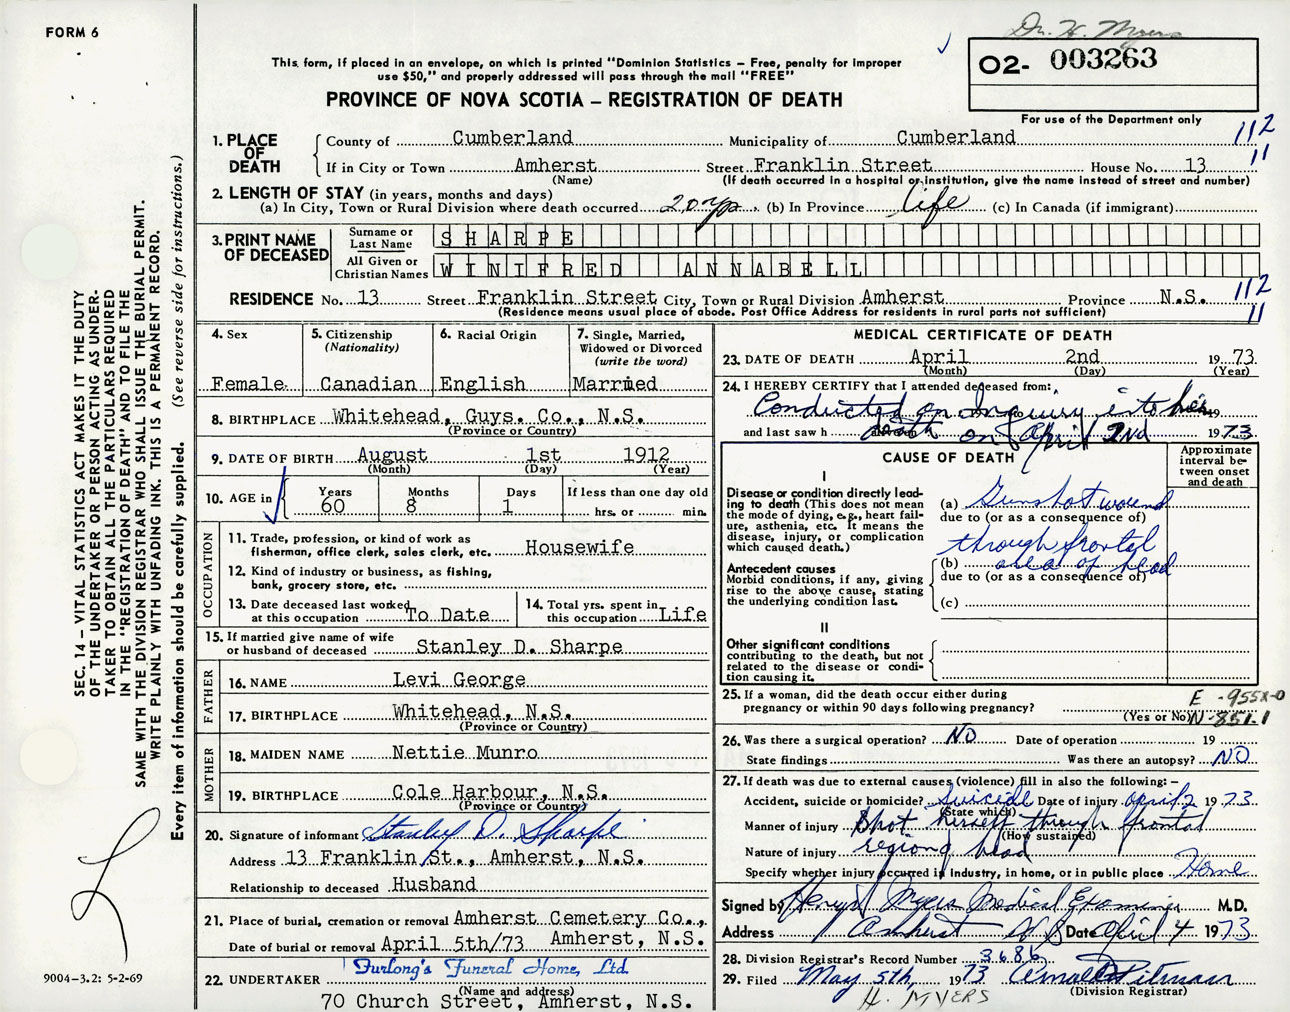 FORM 6
Dr. H. Myers
This form, if placed in an envelope, on which is printed "Dominion Statistics – Free, penalty for improper
use $50," and properly addressed will pass through the mail "FREE"
O2- 003263
PROVINCE OF NOVA SCOTIA – REGISTRATION OF DEATH
For use of the Department only
1. PLACE OF DEATH
County of Cumberland Municipality of Cumberland 112
If in City or Town Amherst Street Franklin Street House No. 13 11
(Name) (If death occurred in a hospital or institution, give the name instead of street and number)
2. LENGTH OF STAY (in years, months and days)
(a) In City, Town or Rural Division where death occurred 20 yrs (b) In Province life (c) In Canada (if immigrant)
3. PRINT NAME OF DECEASED
Surname or Last Name SHARPE
All Given or Christian Names WINIFRED ANNABELL
RESIDENCE No. 13 Street Franklin Street City, Town or Rural Division Amherst Province N.S. 112
(Residence means usual place of abode. Post Office Address for residents in rural parts not sufficient) 11
4. Sex
Female
5. Citizenship
(Nationality)
Canadian
6. Racial Origin
English
7. Single, Married,
Widowed or Divorced
(write the word)
Married
8. BIRTHPLACE Whitehead, Guys. Co., N.S.
(Province or Country)
9. DATE OF BIRTH August 1st 1912
(Month) (Day) (Year)
10. AGE in
Years Months Days If less than one day old
60 8 1 hrs. or min.
OCCUPATION
11. Trade, profession, or kind of work as
fisherman, office clerk, sales clerk, etc. Housewife
12. Kind of industry or business, as fishing,
bank, grocery store, etc.
13. Date deceased last worked
at this occupation To Date
14. Total yrs. spent in
this occupation Life
15. If married give name of wife
or husband of deceased Stanley D. Sharpe
FATHER
16. NAME Levi George
17. BIRTHPLACE Whitehead, N.S.
(Province or Country)
MOTHER
18. MAIDEN NAME Nettie Munro
19. BIRTHPLACE Cole Harbour, N.S.
(Province or Country)
20. Signature of informant Stanley D. Sharpe
Address 13 Franklin St., Amherst, N.S.
Relationship to deceased Husband
21. Place of burial, cremation or removal Amherst Cemetery Co.,
Date of burial or removal April 5th/73 Amherst, N.S.
22. UNDERTAKER Furlong's Funeral Home, Ltd.
(Name and address)
70 Church Street, Amherst, N.S.
MEDICAL CERTIFICATE OF DEATH
23. DATE OF DEATH April 2nd 1973
(Month) (Day) (Year)
24. I HEREBY CERTIFY that I attended deceased from:
Conducted an Inquiry into her 19
and last saw h death on April 2nd 1973
CAUSE OF DEATH
Approximate
interval be-
tween onset
and death
I
Disease or condition directly lead-
ing to death (This does not mean
the mode of dying, e.g., heart fail-
ure, asthenia, etc. It means the
disease, injury, or complication
which caused death.)
(a) Gunshot wound
due to (or as a consequence of)
through frontal
Antecedent causes
Morbid conditions, if any, giving
rise to the above cause, stating
the underlying condition last.
(b) area of head
due to (or as a consequence of)
(c)
II
Other significant conditions
contributing to the death, but not
related to the disease or condi-
tion causing it.
25. If a woman, did the death occur either during
pregnancy or within 90 days following pregnancy?
(Yes or No)
E -955X-0
N-851.1
26. Was there a surgical operation? NO Date of operation 19
State findings Was there an autopsy? NO
27. If death was due to external causes (violence) fill in also the following: –
Accident, suicide or homicide? Suicide Date of injury April 2 1973
(State which)
Manner of injury Shot herself through frontal
(How sustained)
Nature of injury region of head
Specify whether injury occurred in industry, in home, or in public place Home
Signed by Henry Myers Medical Examiner M.D.
Address Amherst N S Date April 4 1973
28. Division Registrar's Record Number 3686
29. Filed May 5th, 1973 Pitman
(Division Registrar)
H. MYERS
SEC. 14 – VITAL STATISTICS ACT MAKES IT THE DUTY
OF THE UNDERTAKER OR PERSON ACTING AS UNDER-
TAKER TO OBTAIN ALL THE PARTICULARS REQUIRED
IN THE "REGISTRATION OF DEATH" AND TO FILE THE
SAME WITH THE DIVISION REGISTRAR WHO SHALL ISSUE THE BURIAL PERMIT.
WRITE PLAINLY WITH UNFADING INK. THIS IS A PERMANENT RECORD.
Every item of information should be carefully supplied. (See reverse side for instructions.)
9004-3.2: 5-2-69